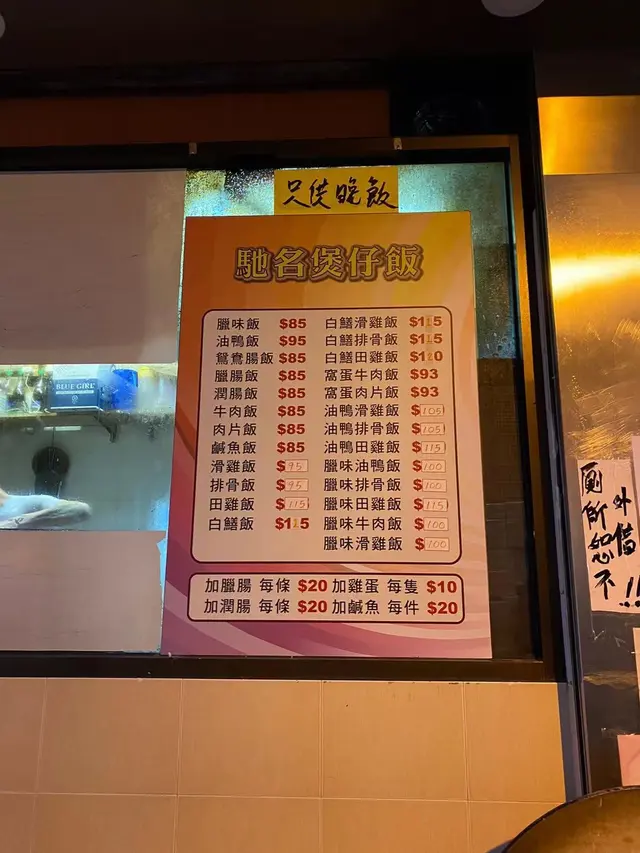 只供晚飯
馳名煲仔飯
臘味飯 $85 白鱔滑雞飯 $115
油鴨飯 $95 白鱔排骨飯 $115
鴛鴦腸飯 $85 白鱔田雞飯 $120
臘腸飯 $85 窩蛋牛肉飯 $93
潤腸飯 $85 窩蛋肉片飯 $93
牛肉飯 $85 油鴨滑雞飯 $105
肉片飯 $85 油鴨排骨飯 $105
鹹魚飯 $85 油鴨田雞飯 $115
滑雞飯 $95 臘味油鴨飯 $100
排骨飯 $95 臘味排骨飯 $100
田雞飯 $115 臘味田雞飯 $115
白鱔飯 $115 臘味牛肉飯 $100
臘味滑雞飯 $100
加臘腸 每條 $20 加雞蛋 每隻 $10
加潤腸 每條 $20 加鹹魚 每件 $20
BLUE GIRL
廁所恕不
外借!!